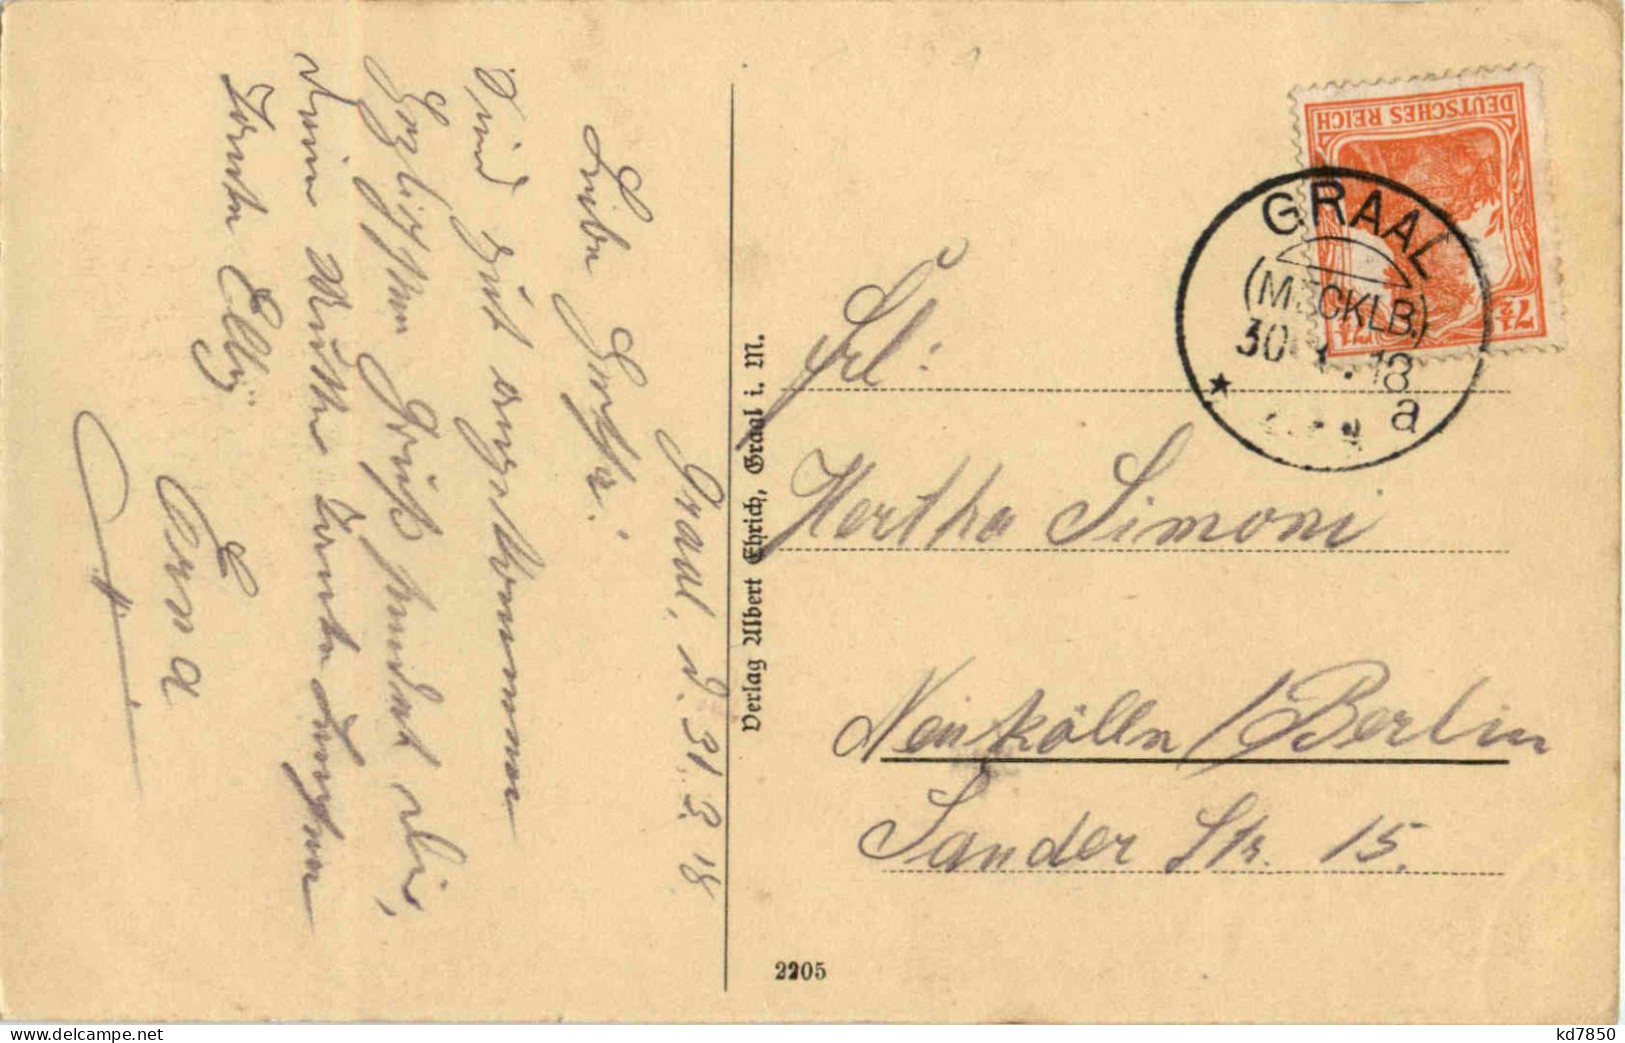 Graal, d. 31.3.18
Liebe Hertha!
Sind gut angekommen
Herzlichen Gruß sendet Dir,
Deine Mutter
Tante Elly
Erna
Verlag Albert Ehrich, Graal i. M.
DEUTSCHES REICH
7½ 7½
GRAAL
(MECKLB.)
30 . 18
a
Frl:
Hertha Simoni
Neukölln / Berlin
Sander Str. 15.
2205
kd7850